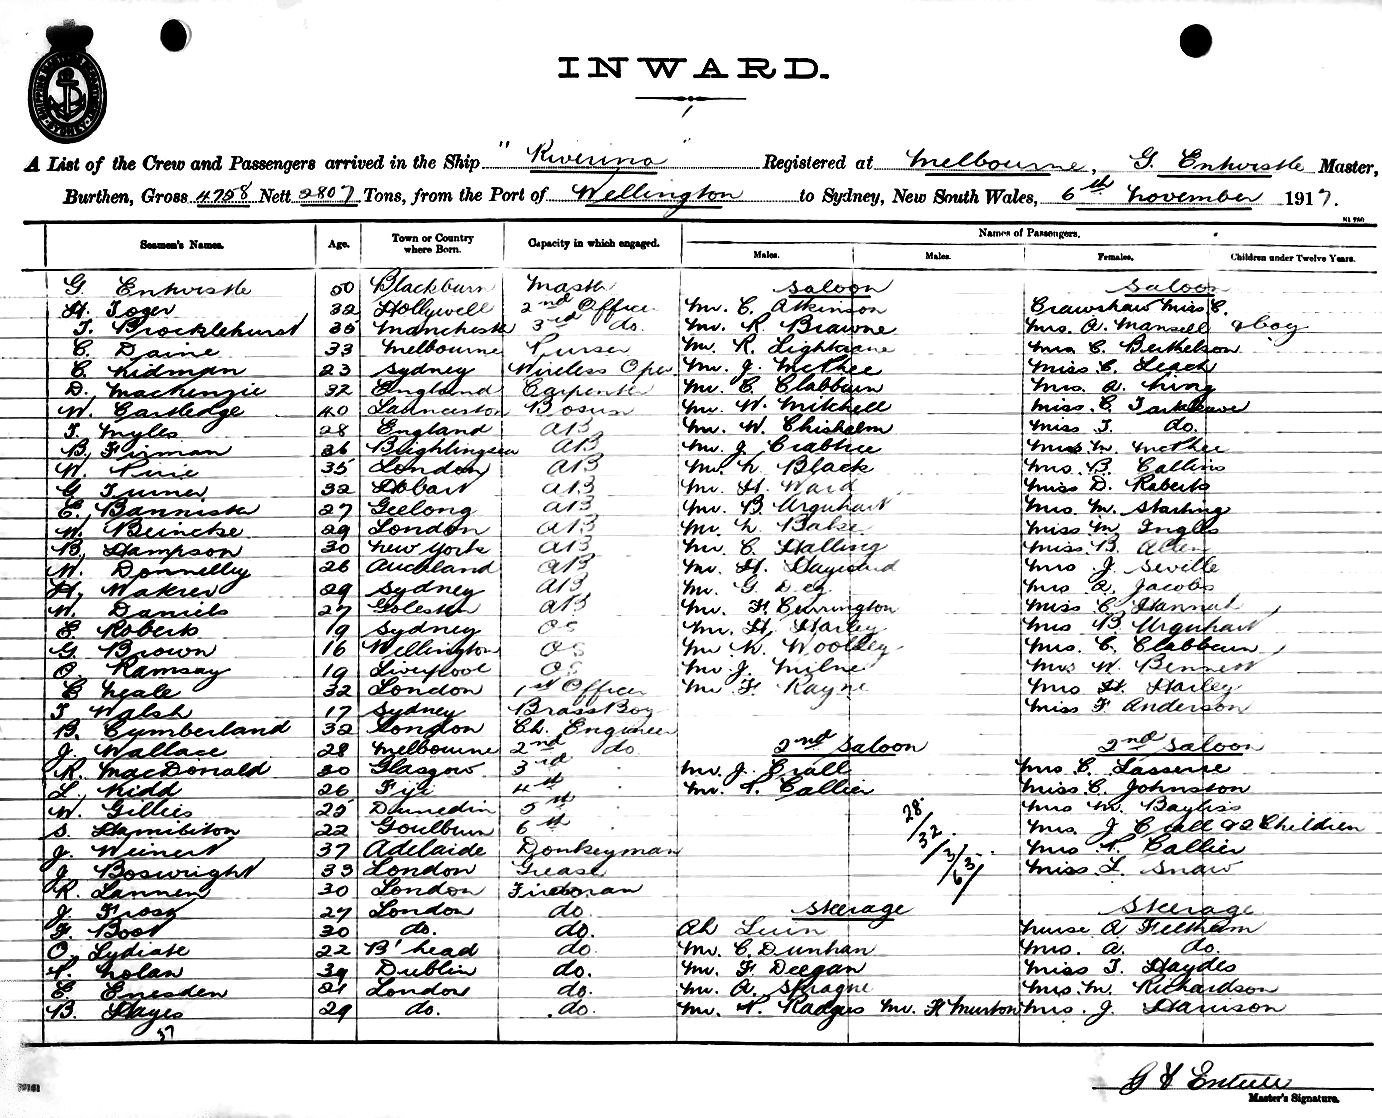 INWARD.
A List of the Crew and Passengers arrived in the Ship "Riverina" Registered at Melbourne, G. Entwistle Master,
Burthen, Gross 4758 Nett 2807 Tons, from the Port of Wellington to Sydney, New South Wales, 6th November 1917.
Names of Passengers.
Seamen's Names. Age. Town or Country where Born. Capacity in which engaged. Males. Males. Females. Children under Twelve Years.
Saloon Saloon
G. Entwistle 50 Blackburn Master
H. Toger 32 Hollywell 2nd Officer Mr. C. Atkinson Crawshaw Miss C.
T. Brocklehurst 35 Manchester 3rd do. Mr. R. Browne Mrs. A. Mansell & boy
C. Daine 33 Melbourne Purser Mr. R. Lightbane Mrs C. Berthelson
C. Kidman 23 Sydney Wireless Oper. Mr. J. McPhee Miss C. Leach
D. Mackenzie 32 England Carpenter Mr. C. Clabburn Mrs. A. King
W. Cartledge 40 Launceston Bosun Mr. W. Mitchell Miss. C.
T. Myles 28 England AB Mr. W. Chisholm Miss T. do.
B. Firman 26 Brightlingsea AB Mr. J. Crabtree Miss M. McPhee
W. Pirie 35 London AB Mr. L. Black Mrs. B. Collins
G. Turner 32 Hobart AB Mr. H. Ward Miss D. Roberts
E. Bannister 27 Geelong AB Mr. B. Urquhart Mrs. M. Starling
W. Beincke 29 London AB Mr. L. Bake Miss M. Ingles
B. Hampson 30 New York AB Mr. C. Halling Miss. B. Allen
W. Donnelly 26 Auckland AB Mr. H. Hayward Mrs J. Seville
H. 29 Sydney AB Mr. G. Dey Mrs A. Jacobs
W. Daniels 27 Goleston AB Mr. H. Currington Miss C. Hannah
E. Roberts 19 Sydney OS Mr. H. Harley Mrs B. Urquhart
G. Brown 16 Wellington OS Mr W. Woolley Mrs. C. Clabburn
O. Ramsay 19 Liverpool OS Mr. J. Milne Mrs W. Bennett
C. Neale 32 London 1st Officer Mr F. Rayne Mrs H. Harley
T. Walsh 17 Sydney Brass Boy Miss F. Anderson
B. Cumberland 32 London Ch. Engineer
J. Wallace 28 Melbourne 2nd do. 2nd Saloon 2nd Saloon
R. MacDonald 30 Glasgow 3rd Mr. J. Crall Mrs C. Lasserre
L. Kidd 26 Fiji 4th Mr. P. Callier Miss C. Johnston
W. Gillies 25 Dunedin 5th Mrs M. Bayliss
S. Hamilton 22 Goulburn 6th Mrs. J Crall & 2 Children
28/32/3/63/
J. Weinert 37 Adelaide Donkeyman Mrs P. Callier
J. Boswright 33 London Greaser Miss L. Snow
R. Lannen 30 London Fireman
J. Frost 27 London do. Steerage Steerage
F. Boot 30 do. do. Ah Luin Nurse A Feltham
O. Lydiate 22 B'head do. Mr. C. Dunhan Mrs. A. do.
P. Nolan 39 Dublin do. Mr. F. Deegan Miss T. Haydes
C. Enesden 21 London do. Mr. A. Sprague Mrs. M. Richardson
B. Hayes 29 do. do. Mr. P. Radges Mr. H Murton Mrs. J. Harrison
37
Master's Signature.